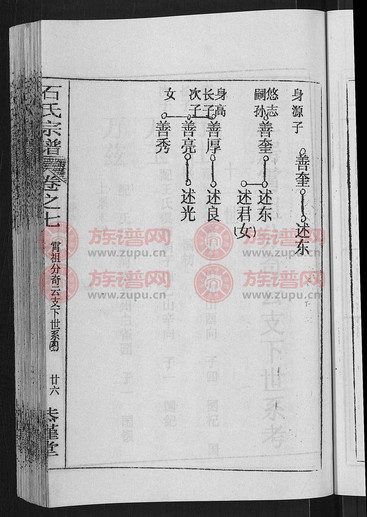 身源子
善奎
述东
悠志
嗣孙
善奎
述东
述君(女)
身高
长子
善厚
述良
次子
善亮
述光
女
善秀
石氏宗谱
卷之七
霄祖分奇云支下世系
廿六
族谱网
www.zupu.cn
族谱网
www.zupu.cn
族谱网
www.zupu.cn
族谱网
www.zupu.cn
支下世系考